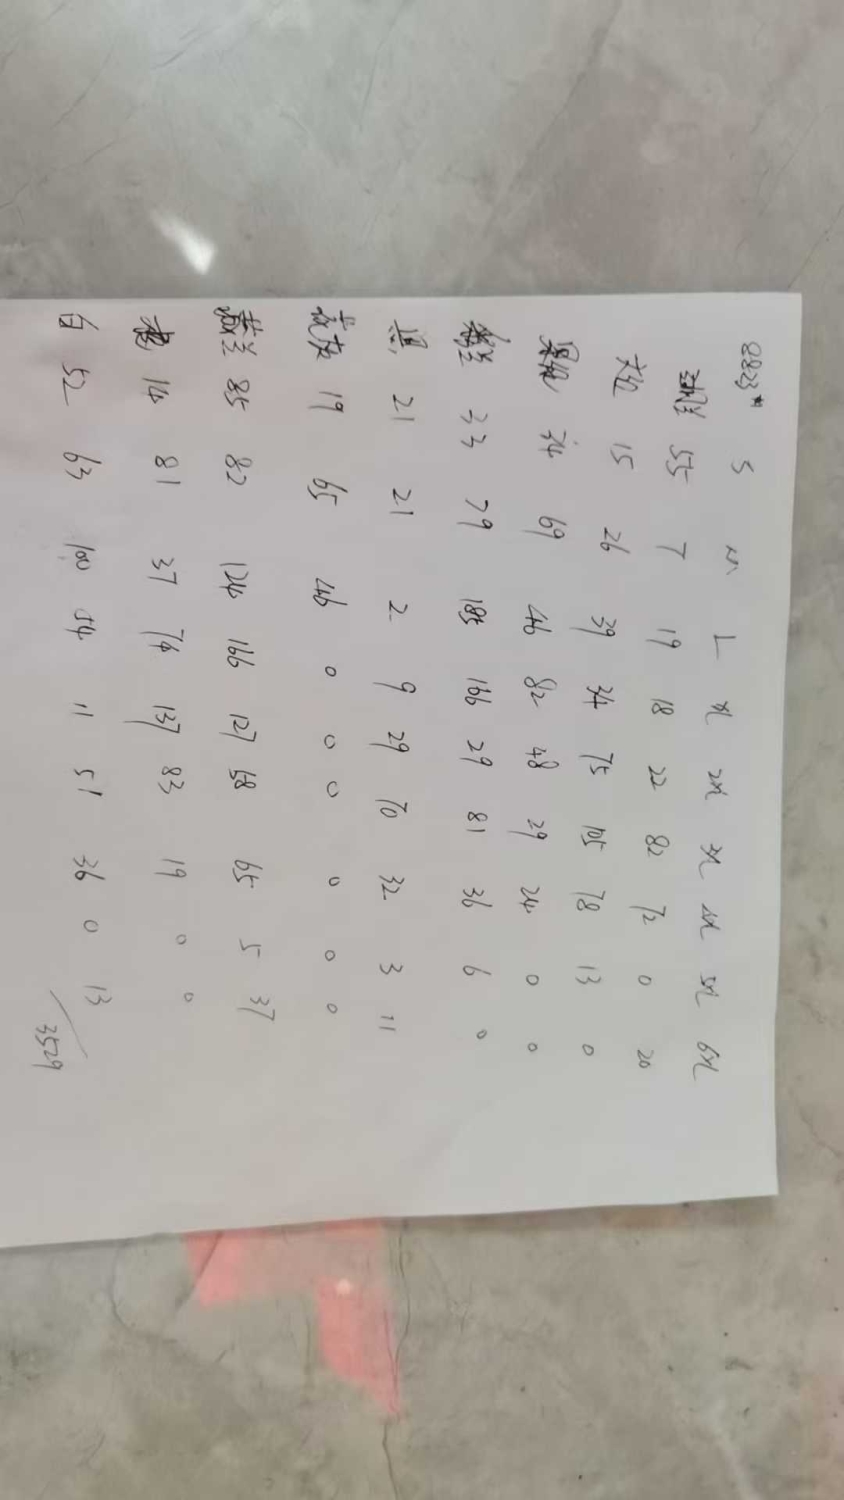 8823# S M L XL 2XL 3XL 4XL 5XL 6XL
55 7 19 18 22 82 72 0 20
大红 15 26 39 34 75 105 78 13 0
34 69 46 82 48 29 24 0 0
33 79 185 166 29 81 36 6 0
黑 21 21 2 9 29 70 32 3 11
19 65 46 0 0 0 0 0 0
藏兰 85 82 124 166 127 58 65 5 37
14 81 37 74 137 83 19 0 0
白 52 63 100 54 11 51 36 0 13
3529